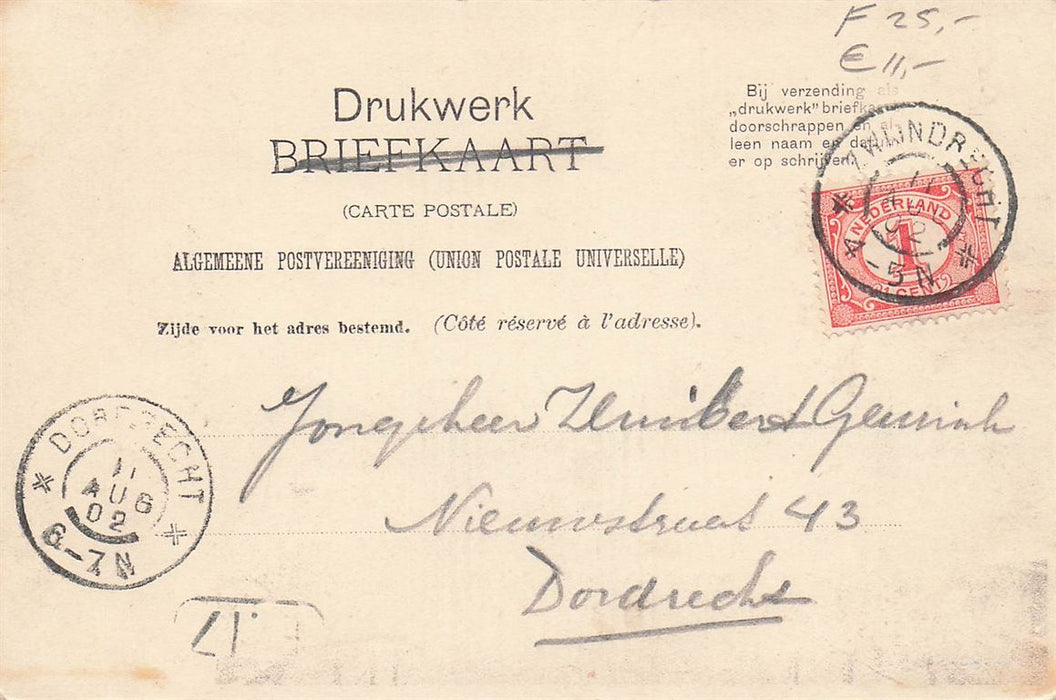 F 25,-
€ 11,-
Drukwerk
BRIEFKAART
(CARTE POSTALE)
ALGEMEENE POSTVEREENIGING (UNION POSTALE UNIVERSELLE)
Zijde voor het adres bestemd. (Côté réservé à l'adresse).
Bij verzending als
„drukwerk" briefkaart
doorschrappen en al-
leen naam en datum
er op schrijven.
ZWIJNDRECHT
11
AUG
02
4-5N
NEDERLAND
1
1 CENT
Jongeheer Humbert Gewink
Nieuwstraat 43
Dordrecht
DORDRECHT
11
AUG
02
6-7N
17